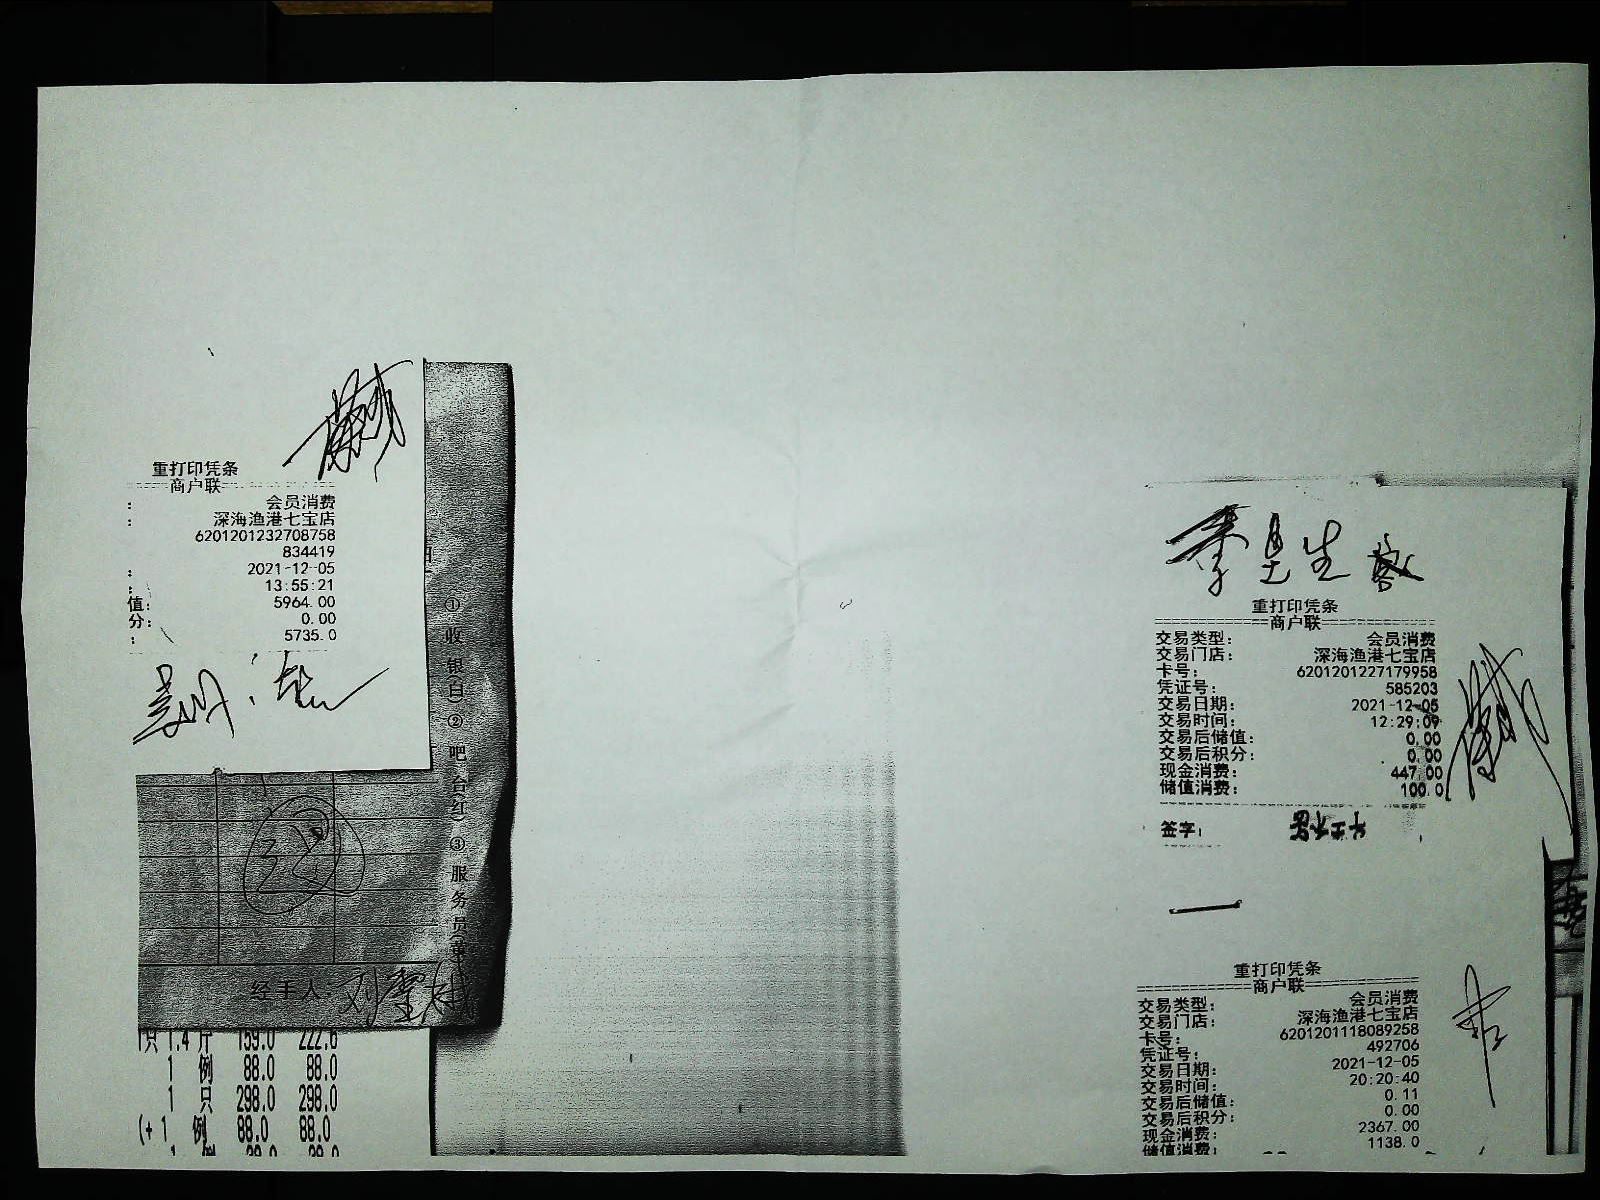 重打印凭条
商户联
: 会员消费
: 深海渔港七宝店
6201201232708758
834419
: 2021-12-05
: 13:55:21
值: 5964.00
分: 0.00
: 5735.0
①收银(白)②吧台(红)③服务员(
经手人
只 1.4 斤 159.0 222.6
1 例 88.0 88.0
1 只 298.0 298.0
(+ 1 例 88.0 88.0
重打印凭条
商户联
交易类型: 会员消费
交易门店: 深海渔港七宝店
卡号: 6201201227179958
凭证号: 585203
交易日期: 2021-12-05
交易时间: 12:29:09
交易后储值: 0.00
交易后积分: 0.00
现金消费: 447.00
储值消费: 100.0
签字:
重打印凭条
商户联
交易类型: 会员消费
交易门店: 深海渔港七宝店
卡号: 6201201118089258
凭证号: 492706
交易日期: 2021-12-05
交易时间: 20:20:40
交易后储值: 0.11
交易后积分: 0.00
现金消费: 2367.00
储值消费: 1138.0